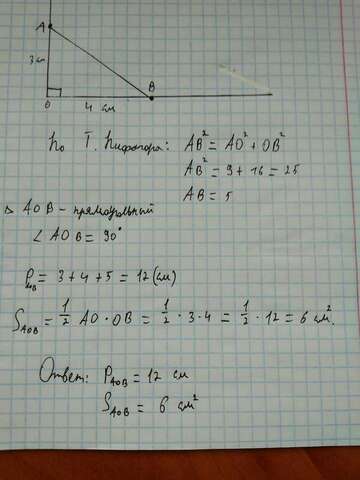 A
3 см
B
0 4 см
По Т. Пифагора: AB² = AO² + OB²
AB² = 9 + 16 = 25
AB = 5
△ AOB - прямоугольный
∠ AOB = 90°
P = 3 + 4 + 5 = 12 (см)
S_AOB = 1/2 AO · OB = 1/2 · 3 · 4 = 1/2 · 12 = 6 см².
Ответ: P_AOB = 12 см
S_AOB = 6 см²